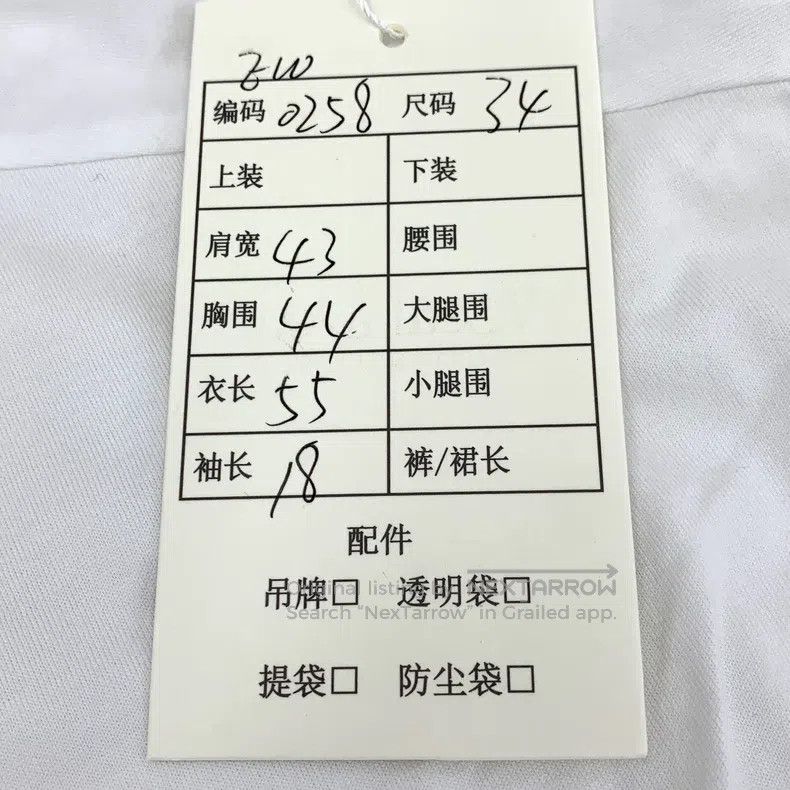 ZW
编码 0258 尺码 34
上装 下装
肩宽 43 腰围
胸围 44 大腿围
衣长 55 小腿围
袖长 18 裤/裙长
配件
吊牌□ 透明袋□
Original listing by NEXTARROW
Search “NexTarrow” in Grailed app.
提袋□ 防尘袋□